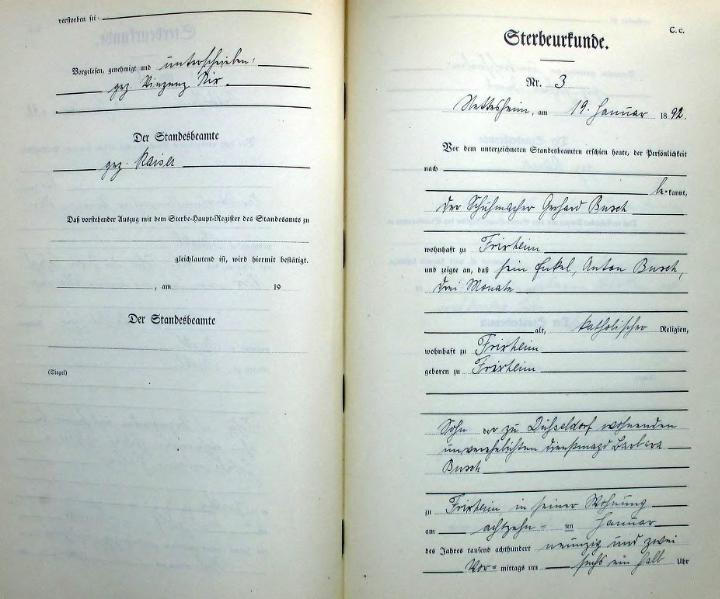 verstorben sei
Vorgelesen, genehmigt und unterschrieben:
gez. Vinzenz Dix
Der Standesbeamte
gez. Kaiser
Daß vorstehender Auszug mit dem Sterbe-Haupt-Register des Standesamts zu
gleichlautend ist, wird hiermit bestätigt.
, am 19
Der Standesbeamte
(Siegel)
C. c.
Sterbeurkunde.
Nr. 3
Nettesheim, am 19. Januar 1892.
Vor dem unterzeichneten Standesbeamten erschien heute, der Persönlichkeit
nach
be-kannt,
der Schuhmacher Gerhard Busch
wohnhaft zu Frixheim
und zeigte an, daß sein Enkel, Anton Busch,
drei Monate
alt, katholischer Religion,
wohnhaft zu Frixheim
geboren zu Frixheim
Sohn der zu Düsseldorf wohnenden
unverehelichten Dienstmagd Barbara
Busch
zu Frixheim in seiner Wohnung
am achtzehn-ten Januar
des Jahres tausend achthundert neunzig und zwei
Vor-mittags um sechs ein halb Uhr